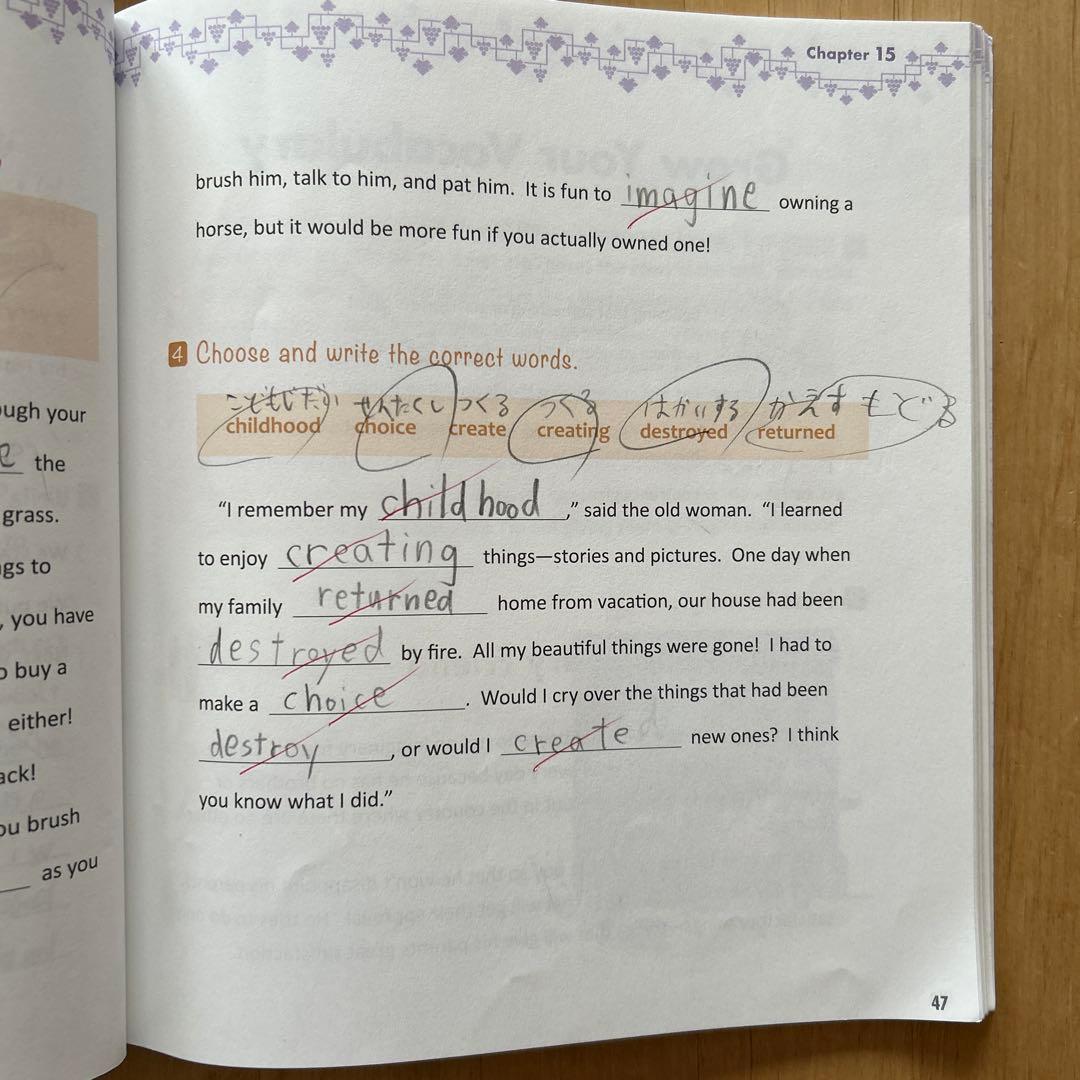 Chapter 15
ough your
e the
grass.
gs to
, you have
o buy a
either!
ack!
ou brush
as you
brush him, talk to him, and pat him. It is fun to imagine owning a
horse, but it would be more fun if you actually owned one!
4 Choose and write the correct words.
こどもじだい せんたくし つくる つくる はかいする かえす もどる
childhood choice create creating destroyed returned
“I remember my childhood,” said the old woman. “I learned
to enjoy creating things—stories and pictures. One day when
my family returned home from vacation, our house had been
destroyed by fire. All my beautiful things were gone! I had to
make a choice. Would I cry over the things that had been
destroy, or would I create new ones? I think
you know what I did.”
47